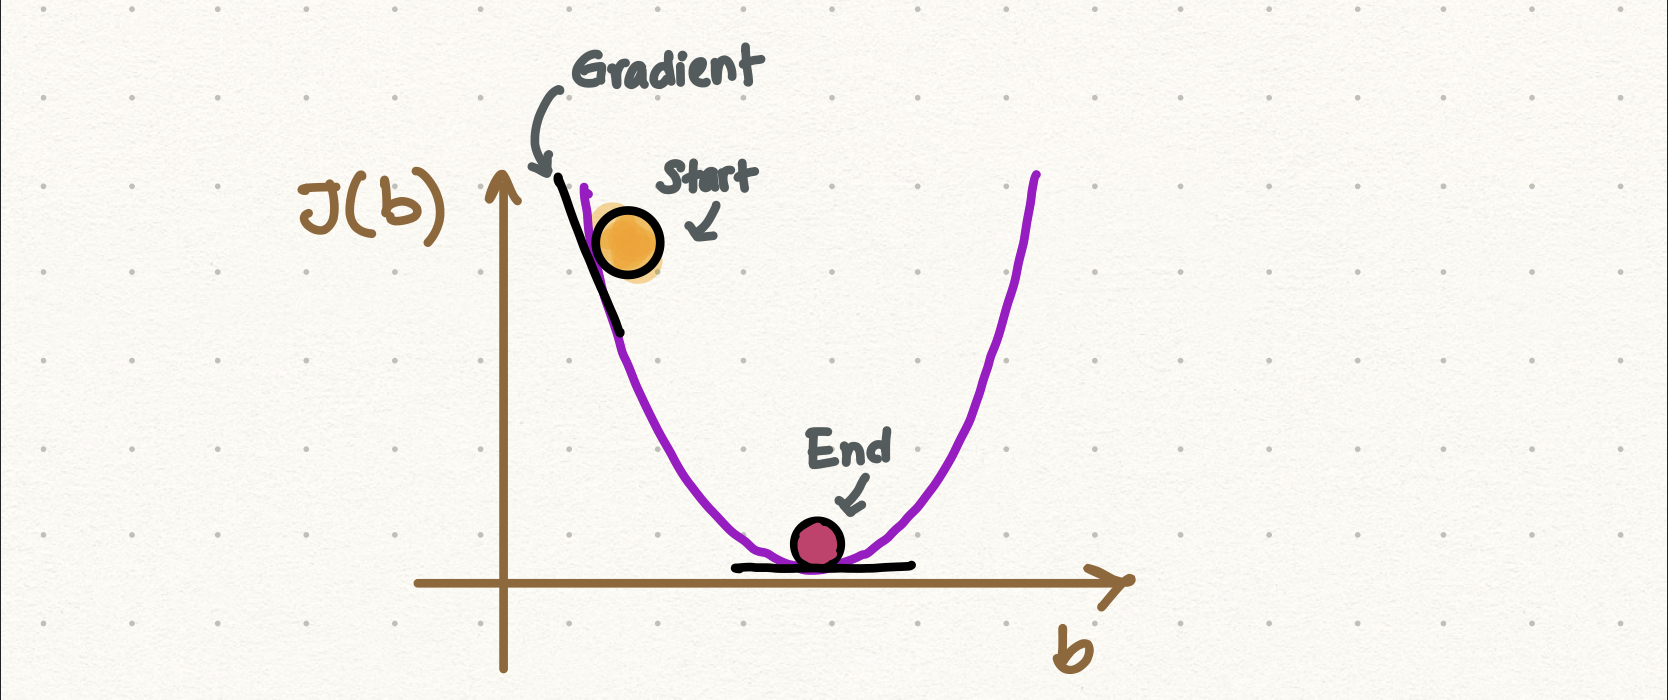 Gradient
Start
J(b)
End
b